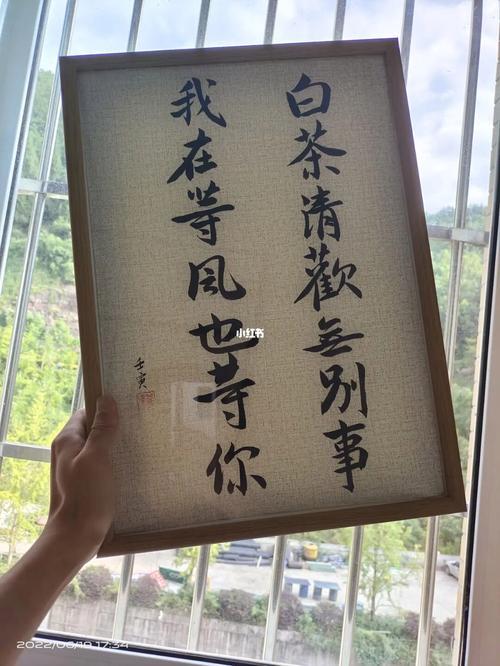 白茶清歡無別事
我在等風也等你
壬寅
小红书
2022/06/19 17:34